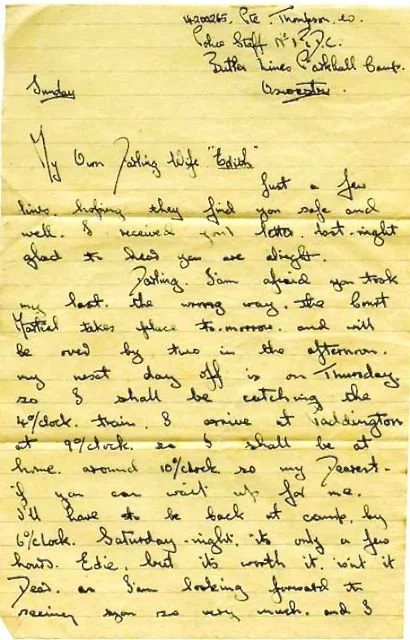 14200265. Pte. Thompson. W.
Police Staff No 1 P.D.C.
Butler Lines Parkhall Camp.
Oswestry.
Sunday
My Own Darling Wife "Edith"
Just a few
lines. hoping they find you safe and
well. I received your letter. last-night
glad to hear you are alright.
Darling. I'am afraid you took
my last. the wrong way. the Court
Matial takes place to-morrow. and will
be over by two in the afternoon.
my next day off is on Thursday
so I shall be catching the
4o/clock. train. I arrive at Paddington
at 9o/clock. so I shall be at
home. around 10o/clock. so my Dearest-
if you can wait up for me.
I'll have to be back at camp. by
6o/clock. Saturday-night. its only a few
hours. Edie. but it's worth it. isnt it
Dear. as I'am looking forward to
seeing you so very much. and I